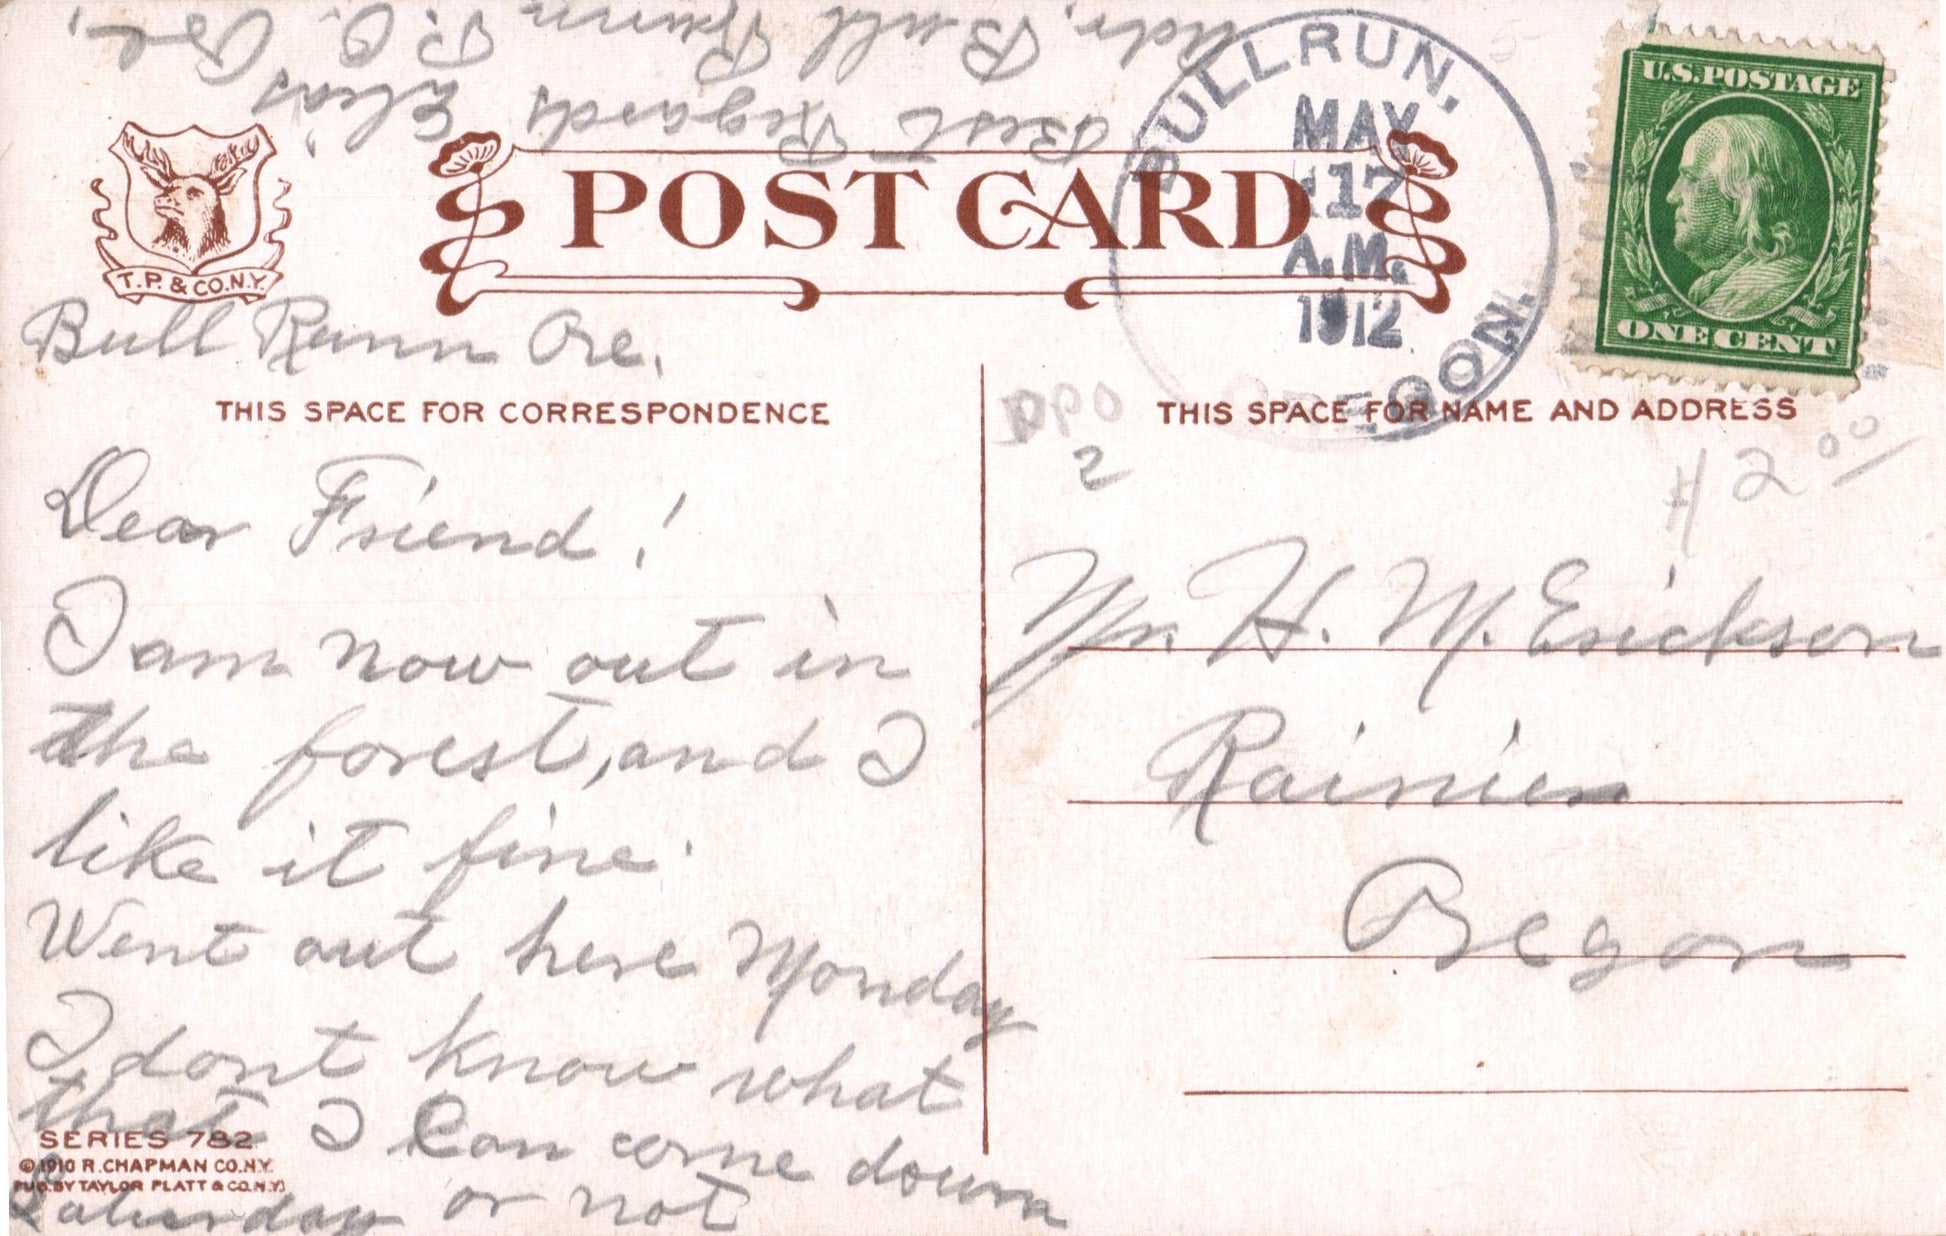 T. P. & CO. N.Y.
POST CARD
BULL RUN,
MAY
17
A.M.
1912
OREGON.
U.S. POSTAGE
ONE CENT
Bull Runn Ore.
THIS SPACE FOR CORRESPONDENCE
Dear Friend!
I am now out in
the forest, and I
like it fine.
Went out here Monday
I dont know what
that I Can come down
Saturday or not
SERIES 782
© 1910 R. CHAPMAN CO. N.Y.
PUB. BY TAYLOR PLATT & CO. N.Y.
Best Regards Elias
Adr, Bull Runn P. O. Ore,
THIS SPACE FOR NAME AND ADDRESS
DPO
2
$2.00
Mr. H. M. Erickson
Rainier
Oregon